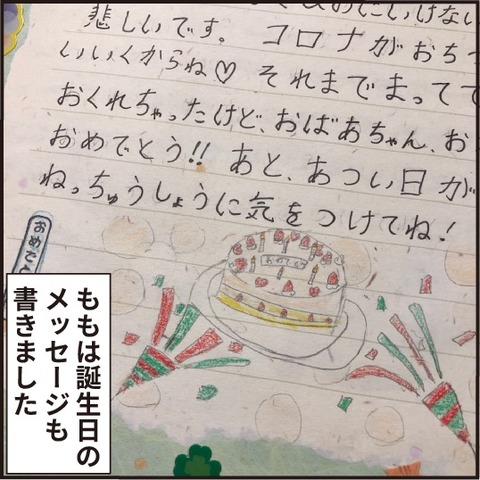 悲しいです。コロナがおちつ
いいくからね♡ それまでまってて
おくれちゃったけど、おばあちゃん、お
おめでとう!! あと、あつい日が
ねっちゅうしょうに気をつけてね!
おめでと
おめでとう
ももは誕生日の
メッセージも
書きました